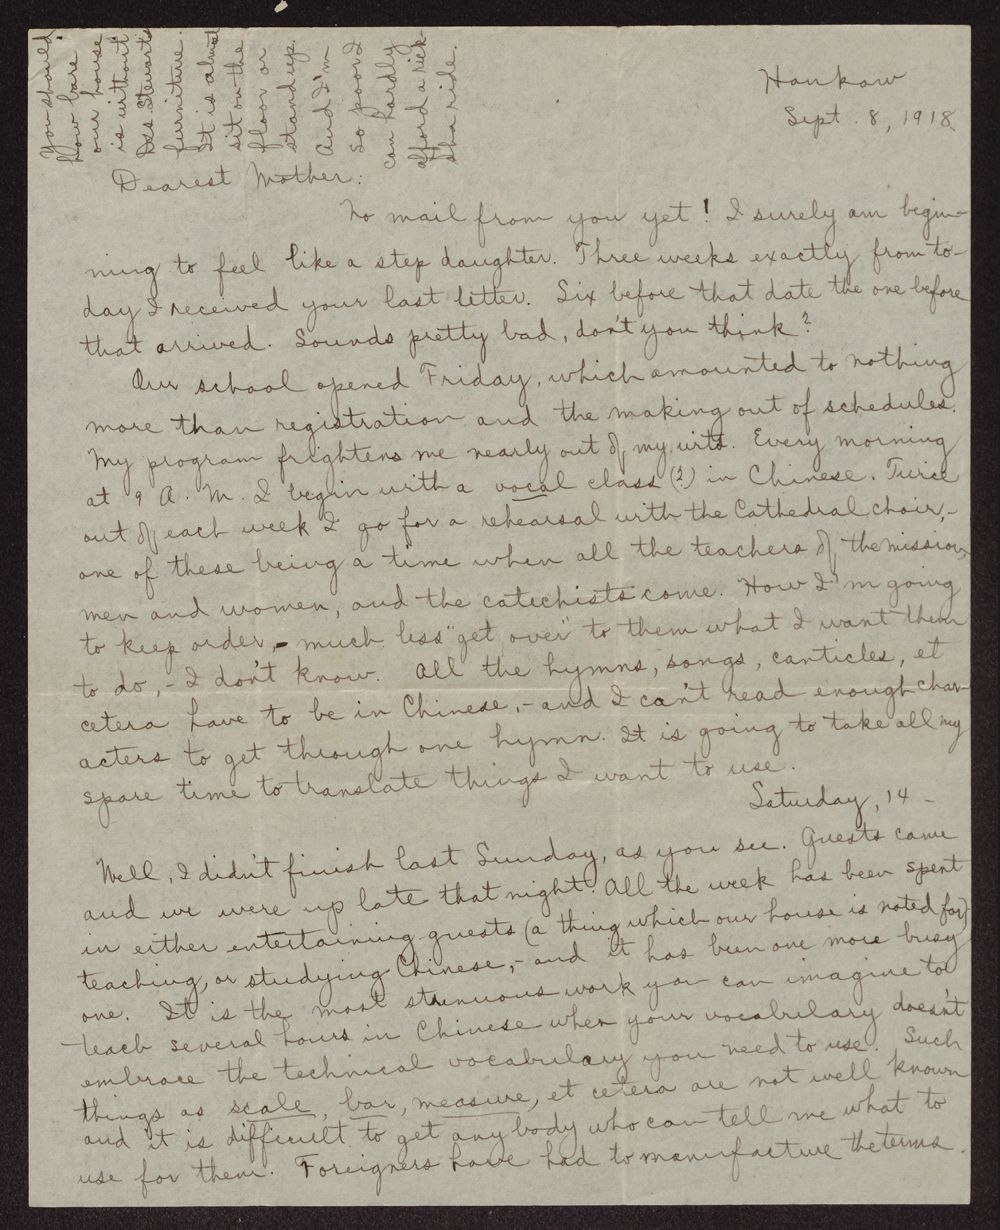 You should
how bare
our house
is without
Des. Stewart's
furniture.
It is almost
sit on the
floor or
stand up.
And I'm
so poor I
can hardly
afford a rick-
sha ride.
Hankow
Sept. 8, 1918.
Dearest Mother:
No mail from you yet! I surely am begin-
ning to feel like a step daughter. Three weeks exactly from to-
day I received your last letter. Six before that date the one before
that arrived. Sounds pretty bad, don't you think?
Our school opened Friday, which amounted to nothing
more than registration and the making out of schedules.
My program frightens me nearly out of my wits. Every morning
at 9 A. M. I begin with a vocal class (?) in Chinese. Twice
out of each week I go for a rehearsal with the Cathedral choir,-
one of these being a time when all the teachers of the mission,
men and women, and the catechists come. How I'm going
to keep order,- much less "get over" to them what I want them
to do,- I don't know. All the hymns, songs, canticles, et
cetera have to be in Chinese,- and I can't read enough char-
acters to get through one hymn. It is going to take all my
spare time to translate things I want to use.
Saturday, 14 -
Well, I didn't finish last Sunday, as you see. Guests came
and we were up late that night. All the week has been spent
in either entertaining guests (a thing which our house is noted for)
teaching, or studying Chinese,- and it has been one more busy
one. It is the most strenuous work you can imagine to
teach several hours in Chinese when your vocabulary doesn't
embrace the technical vocabulary you need to use. Such
things as scale, bar, measure, et cetera are not well known
and it is difficult to get anybody who can tell me what to
use for them. Foreigners have had to manufacture the terms.